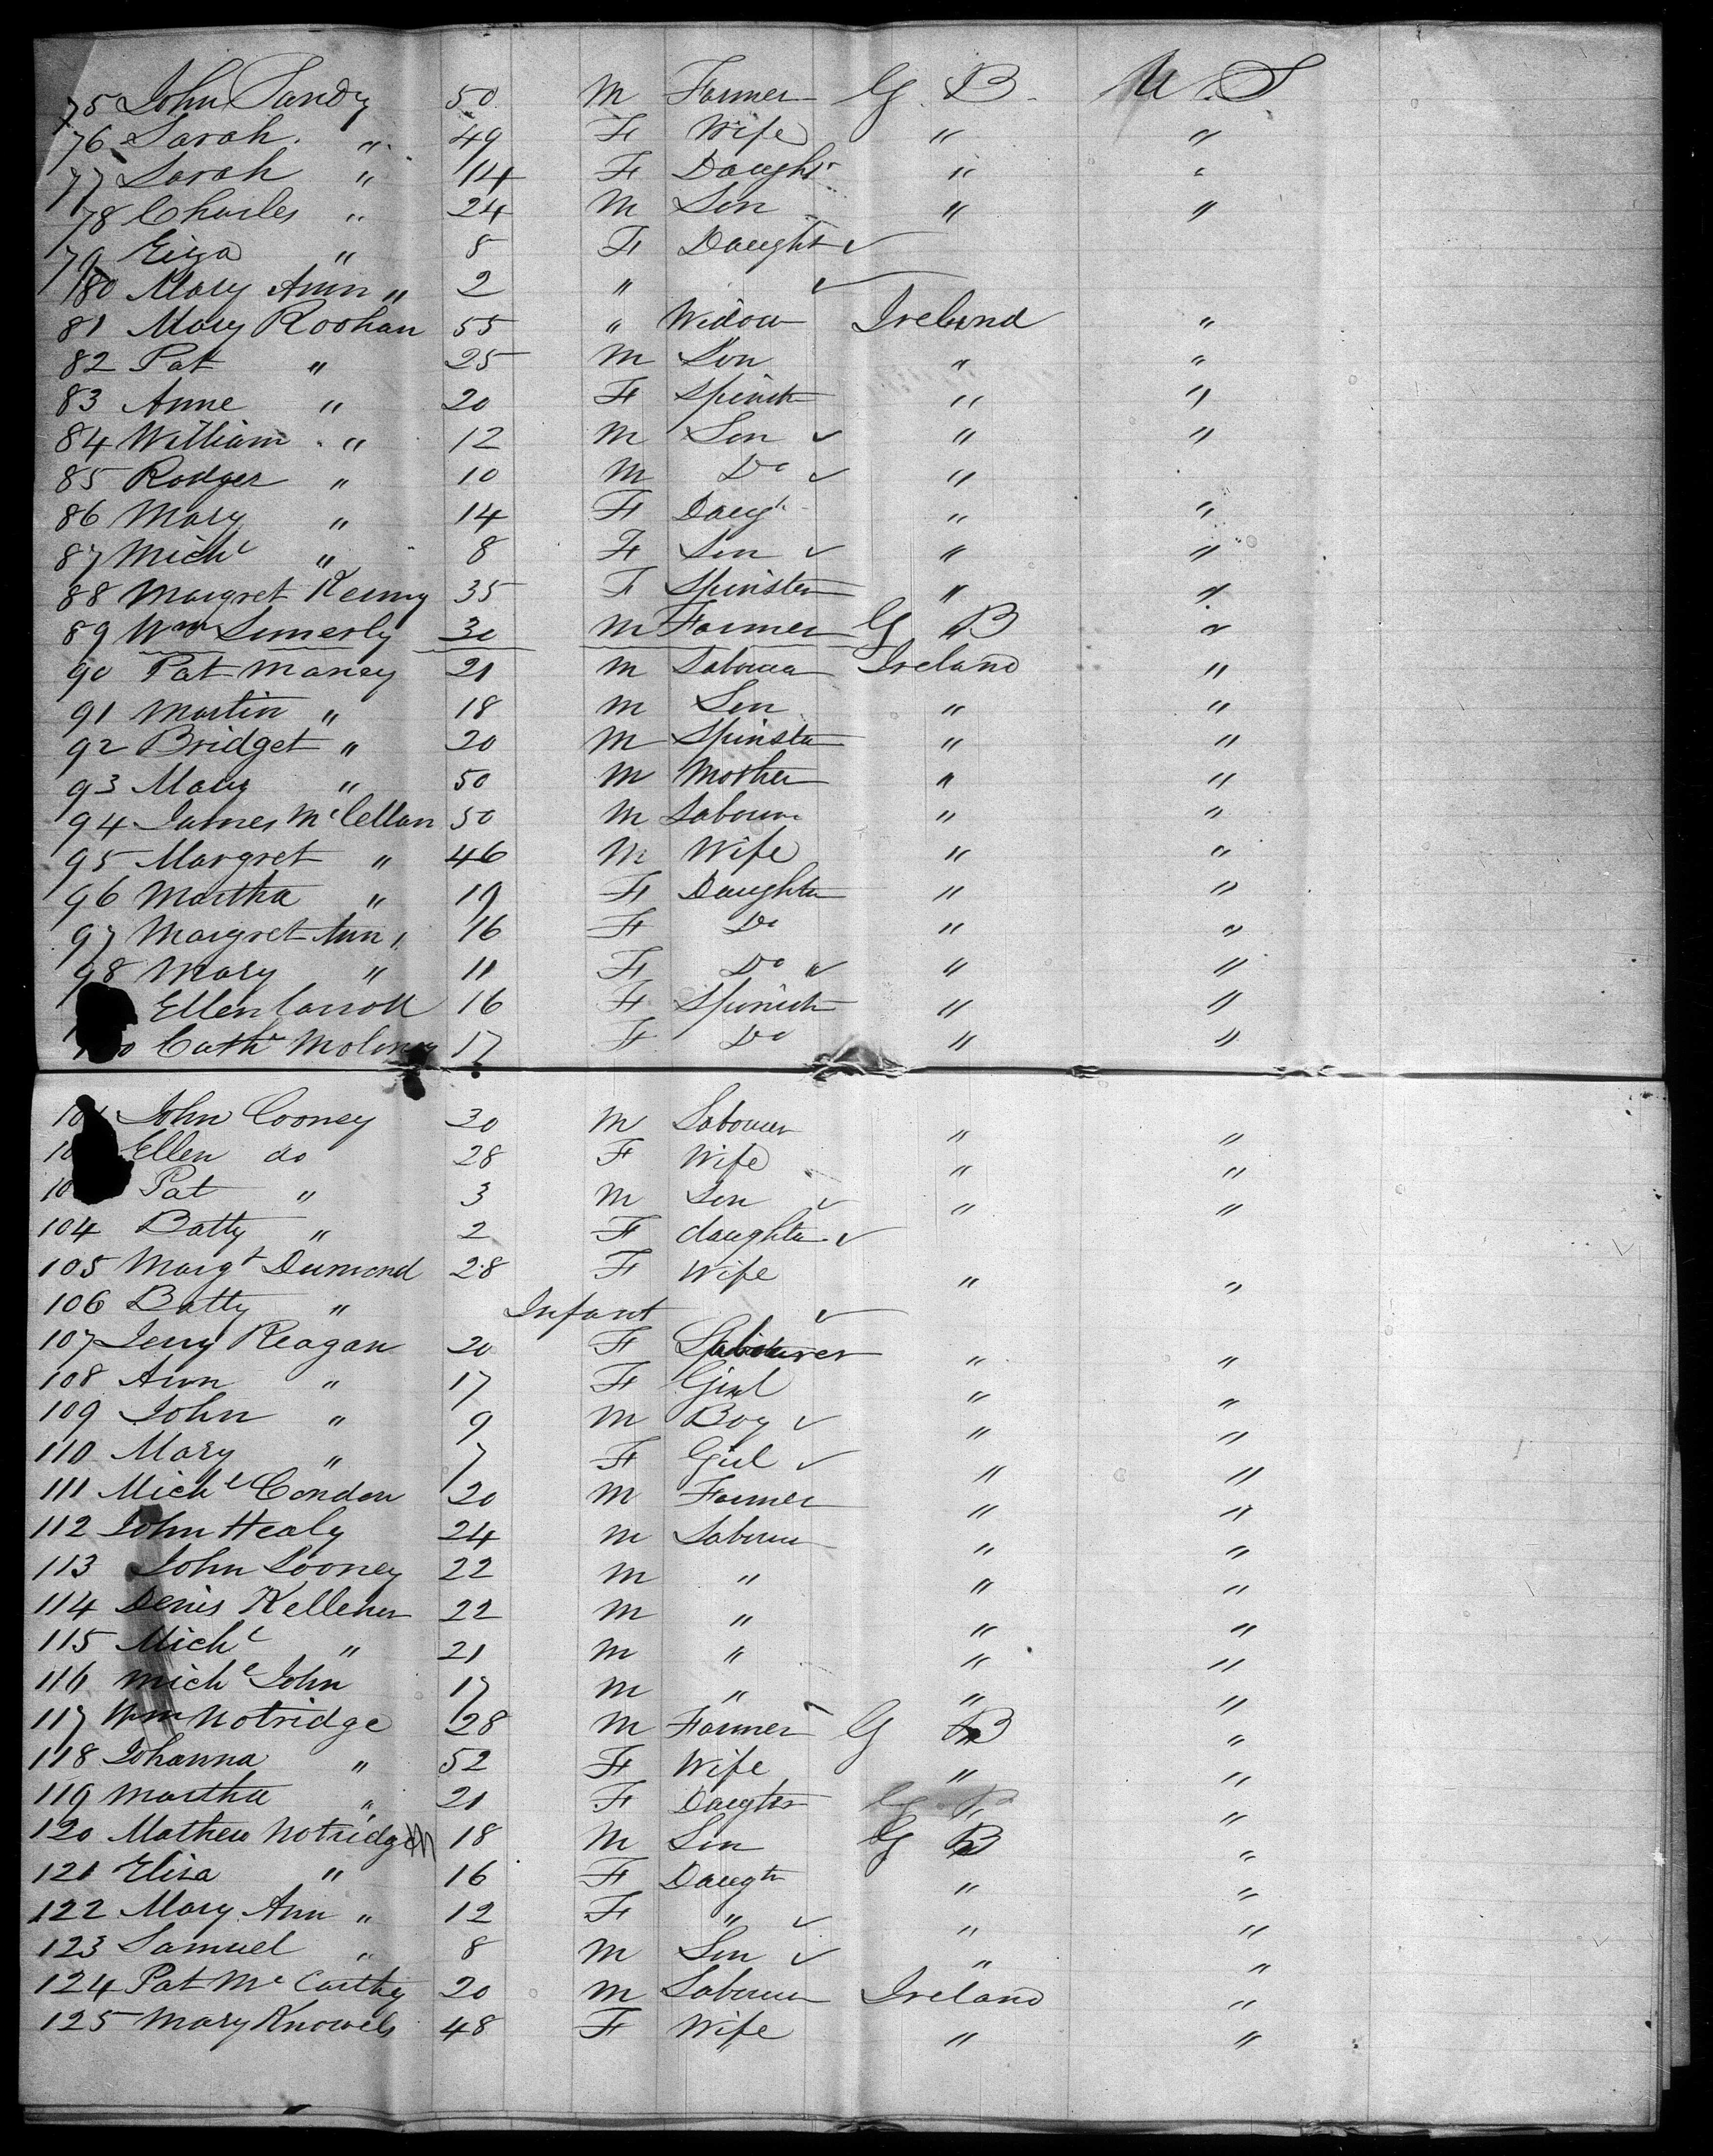 75 John Sandy 50 M Farmer G. B. U. S.
76 Sarah " 49 F Wife " "
77 Sarah " 14 F Daught " "
78 Charles " 24 M Son " "
79 Eiza " 8 F Daught ✓
80 Mary Ann " 2 " ✓
81 Mary Roohan 55 " Widow Ireland "
82 Pat " 25 M Son " "
83 Anne " 20 F Spinst " "
84 William " 12 M Son ✓ " "
85 Rodger " 10 M Do ✓ "
86 Mary " 14 F Daug " "
87 Michl " 8 F Son ✓ " "
88 Margret Kenny 35 F Spinster " "
89 Wm Simerly 30 M Farmer G B "
90 Pat Maney 21 M Labourer Ireland "
91 Martin " 18 M Son " "
92 Bridget " 20 M Spinster " "
93 Mary " 50 M Mother " "
94 James McCellan 50 M Labourer " "
95 Margret " 46 M Wife " "
96 Martha " 19 F Daughter " "
97 Margret Ann " 16 F Do " "
98 Mary " 11 F Do ✓ " "
Ellen Carroll 16 F Spinst " "
Cathe Moloney 17 F Do " "
John Cooney 30 M Labourer " "
Ellen do 28 F Wife " "
Pat " 3 M Son ✓ " "
104 Batty " 2 F daughter ✓
105 Margt Dumond 28 F Wife " "
106 Batty " Infant ✓
107 Jerry Reagan 20 F Labourer " "
108 Ann " 17 F Girl " "
109 John " 9 M Boy ✓ " "
110 Mary " 7 F Girl ✓ " "
111 Michl Condon 20 M Farmer " "
112 John Healy 24 M Labourer " "
113 John Looney 22 M " " "
114 Denis Kelleher 22 M " " "
115 Michl " 21 M " " "
116 Michl John 17 M " " "
117 Wm Notridge 28 M Farmer G B "
118 Johanna " 52 F Wife " "
119 Martha " 21 F Daughter G. B. "
120 Mathew Notridge 18 M Son G B "
121 Eliza " 16 F Daugtr " "
122 Mary Ann " 12 F " ✓ " "
123 Samuel " 8 M Son ✓ " "
124 Pat McCarthy 20 M Labourer Ireland "
125 Mary Knowels 48 F Wife " "